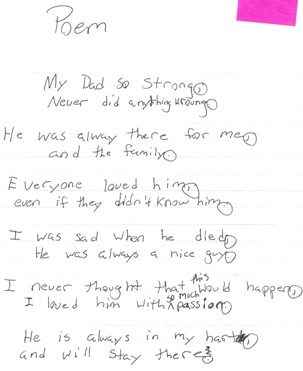 Poem
My Dad so strong,
Never did anything wroung.
He was alway there for me,
and the family.
Everyone loved him,
even if they didn't know him.
I was sad when he died,
He was always a nice guy.
I never thought that this would happen,
I loved him with so much passion.
He is always in my hart
and will stay there.